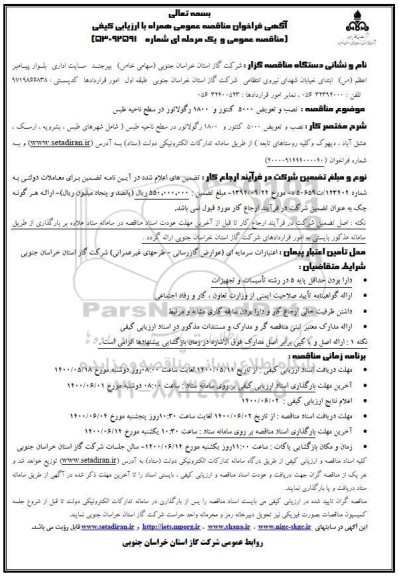 بسمه تعالی
آگهی فراخوان مناقصه عمومی همراه با ارزیابی کیفی
(مناقصه عمومی و یک مرحله ای شماره ۵۳۰۹۲۵۹۱)
نام و نشانی دستگاه مناقصه گزار : شرکت گاز استان خراسان جنوبی (سهامی خاص) بیرجند سایت اداری بلوار پیامبر
اعظم (ص) ابتدای خیابان شهدای نیروی انتظامی شرکت گاز استان خراسان جنوبی طبقه اول امور قراردادها کدپستی : ۹۷۱۹۸۶۶۸۳۸
تلفن : ۳۲۳۹۲۰۰۰ ۰۵۶ ، نمابر امور قراردادها : ۳۲۴۰۰۵۲۳ ۰۵۶
موضوع مناقصه : نصب و تعویض ۵۰۰۰ کنتور و ۱۸۰۰ رگولاتور در سطح ناحیه طبس
شرح مختصر کار : نصب و تعویض ۵۰۰۰ کنتور و ۱۸۰۰ رگولاتور در سطح ناحیه طبس ( شامل شهرهای طبس ، بشرویه ، ارسک ،
عشق آباد ، دیهوک و کلیه روستاهای تابعه ) از طریق سامانه تدارکات الکترونیکی دولت (ستاد) به آدرس (www.setadiran.ir) و به
شماره فراخوان (۲۰۰۰۰۹۱۲۴۴۰۰۰۰۴۰)
نوع و مبلغ تضمین شرکت در فرآیند ارجاع کار : تضمین های اعلام شده در آیین نامه تضمین برای معاملات دولتی به
شماره ۱۲۳۴۰۲/ت۵۰۶۵۹ه مورخ ۱۳۹۴/۰۹/۲۲ مبلغ تضمین : ۵۵۰,۰۰۰,۰۰۰ ریال (پانصد و پنجاه میلیون ریال)- ارائه هر گونه
چک به عنوان تضمین شرکت در فرآیند ارجاع کار مورد قبول نمی باشد.
نکته : اصل تضمین شرکت در فرآیند ارجاع کار تا قبل از آخرین مهلت عودت اسناد مناقصه در سامانه ستاد علاوه بر بارگذاری از طریق
سامانه مذکور بایستی به امور قراردادهای شرکت گاز استان خراسان جنوبی ارائه گردد .
محل تأمین اعتبار پیمان : اعتبارات سرمایه ای (عوارض گازرسانی – طرحهای غیرعمرانی) شرکت گاز استان خراسان جنوبی
شرایط متقاضیان :
• دارا بودن حداقل پایه ۵ در رشته تأسیسات و تجهیزات
• ارائه گواهینامه تأیید صلاحیت ایمنی از وزارت تعاون ، کار و رفاه اجتماعی
• داشتن ظرفیت خالی ارجاع کار و دارا بودن سابقه کاری مشابه و مرتبط
• ارائه مدارک معتبر ثبتی مناقصه گر و مدارک و مستندات مذکور در اسناد ارزیابی کیفی
نکته ۱ : ارائه اصل و یا کپی برابر اصل مدارک فوق الاشاره در زمان بازگشایی پیشنهادها الزامی است.
برنامه زمانی مناقصه :
• مهلت دریافت اسناد ارزیابی کیفی : از تاریخ ۱۴۰۰/۰۵/۱۱ لغایت ساعت ۰۸:۰۰ روز دوشنبه مورخ ۱۴۰۰/۰۵/۱۸
• آخرین مهلت بارگذاری اسناد ارزیابی کیفی بر روی سامانه ستاد : ساعت ۰۸:۰۰ دوشنبه مورخ ۱۴۰۰/۰۶/۰۱
• اعلام نتایج ارزیابی کیفی : ۱۴۰۰/۰۶/۰۲
• مهلت دریافت اسناد مناقصه : از تاریخ ۱۴۰۰/۰۶/۰۲ لغایت ساعت ۱۰:۳۰ روز پنجشنبه مورخ ۱۴۰۰/۰۶/۰۴
• آخرین مهلت بارگذاری اسناد مناقصه بر روی سامانه ستاد : ساعت ۱۰:۳۰ یکشنبه مورخ ۱۴۰۰/۰۶/۱۴
• زمان و مکان بازگشایی پاکات : ساعت ۱۱:۰۰ روز یکشنبه مورخ ۱۴۰۰/۰۶/۱۴- سالن جلسات شرکت گاز استان خراسان جنوبی
کلیه اسناد مناقصه و ارزیابی کیفی از طریق درگاه سامانه تدارکات الکترونیکی دولت (ستاد) به آدرس (www.setadiran.ir) توزیع خواهد شد و
این آگهی در سایتهای www.nigc-skgc.ir ، www.shana.ir ، http://iets.mporg.ir و www.setadiran.ir قابل رؤیت می باشد.
روابط عمومی شرکت گاز استان خراسان جنوبی